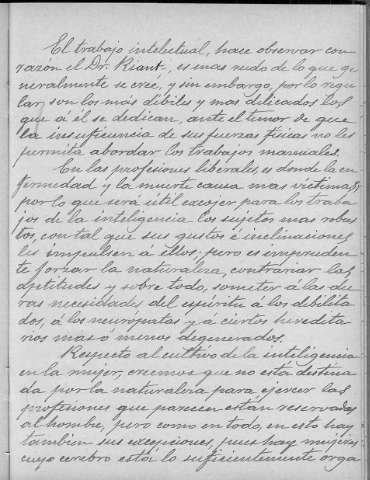 El trabajo intelectual, hace observar con
razón el Dr. Riant, es mas rudo de lo que ge
neralmente se creé, y sin embargo, por lo regu
lar, son los más débiles y mas delicados los
que á él se dedican, ante el temor de que
la insuficiencia de sus fuerzas físicas no les
permita abordar los trabajos manuales.
En las profesiones liberales, es donde la en
fermedad y la muerte causa mas victimas,
por lo que será útil escojer, para los traba
jos de la inteligencia los sujetos mas robus
tos, con tal que sus gustos é inclinaciones
les impulsen á ellos; pero es impruden
te forzar la naturaleza, contrariar las
aptitudes y sobre todo, someter á las du
ras necesidades del espíritu á los debilita
dos, á los neurópatas y á ciertos heredita
rios mas ó menos degenerados.
Respecto al cultivo de la inteligencia
en la mujer, creemos que no está destina
da por la naturaleza para ejercer las
profesiones que parecen están reservadas
al hombre, pero como en todo, en esto hay
tambien sus excepciones, pues hay mujeres
cuyo cerebro está lo suficientemente orga